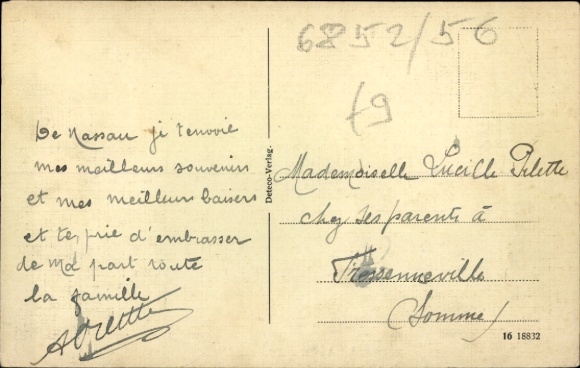 6852/56
f9
De Nassau je t'envoie
mes meilleurs souvenirs
et mes meilleurs baisers
et te prie d'embrasser
de ma part toute
la famille
Deteco-Verlag.
Mademoiselle Lucille Pilette
chez ses parents à
Fressenneville
(Somme)
16 18832